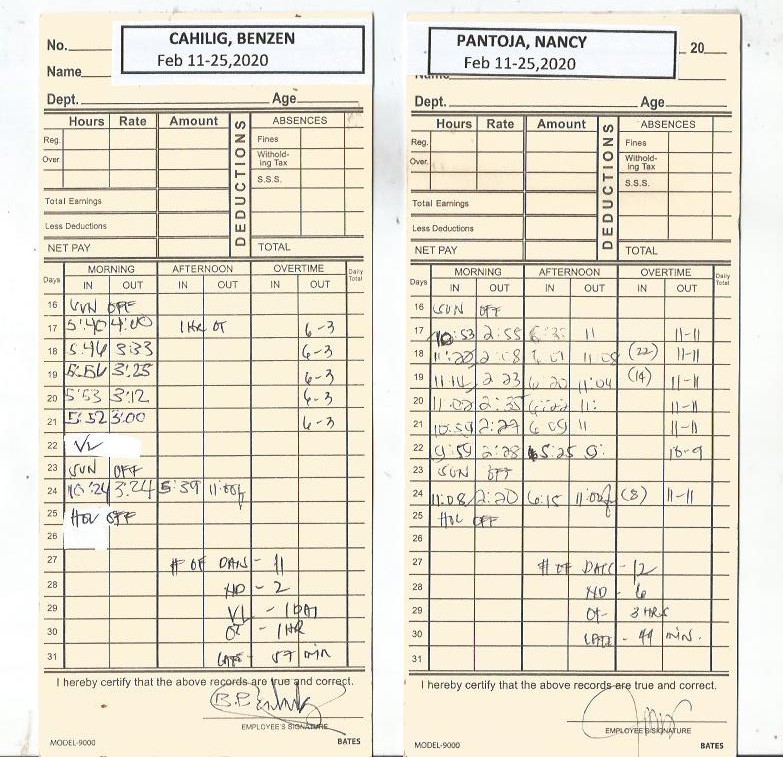 CAHILIG, BENZEN
Feb 11-25,2020
No.
Name
Dept. Age
Hours Rate Amount DEDUCTIONS ABSENCES
Reg. Fines
Over. Withholding Tax
S.S.S.
Total Earnings
Less Deductions
NET PAY TOTAL
Days MORNING AFTERNOON OVERTIME Daily Total
IN OUT IN OUT IN OUT
16 SUN OFF
17 5:40 4:00 1 HR OT 6-3
18 5:46 3:33 6-3
19 5:56 3:25 6-3
20 5:53 3:12 6-3
21 5:52 3:00 6-3
22 VL
23 SUN OFF
24 10:24 3:24 5:39 11:00
25 HOL OFF
26
27 # OF DAYS - 11
28 ND - 2
29 VL - 1 DAY
30 OT - 1 HR
31 LATE - 57 min
I hereby certify that the above records are true and correct.
EMPLOYEE'S SIGNATURE
MODEL-9000 BATES
PANTOJA, NANCY
Feb 11-25,2020
20
Name
Dept. Age
Hours Rate Amount DEDUCTIONS ABSENCES
Reg. Fines
Over. Withholding Tax
S.S.S.
Total Earnings
Less Deductions
NET PAY TOTAL
Days MORNING AFTERNOON OVERTIME Daily Total
IN OUT IN OUT IN OUT
16 SUN OFF
17 10:53 2:55 11 11-11
18 11:22 2:08 11:08 (22) 11-11
19 11:14 2:23 6:20 11:04 (14) 11-11
20 11:02 2:35 6:22 11: 11-11
21 10:59 2:27 6:09 11 11-11
22 9:59 2:28 5:25 9: 10-9
23 SUN OFF
24 11:08 2:20 6:15 11:00 (8) 11-11
25 HOL OFF
26
27 # OF DAYS - 12
28 ND - 6
29 OT - 3 HRS
30 LATE - 44 min.
31
I hereby certify that the above records are true and correct.
EMPLOYEE'S SIGNATURE
MODEL-9000 BATES